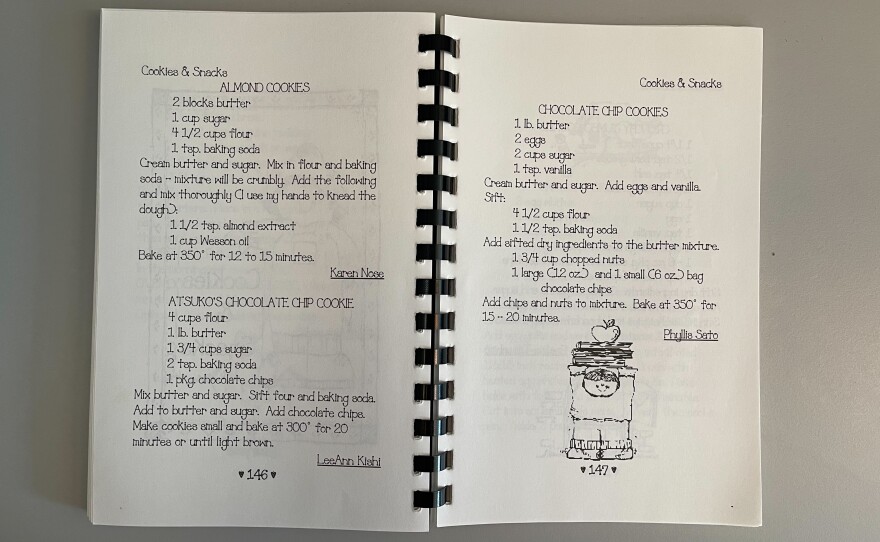 Cookies & Snacks
ALMOND COOKIES
2 blocks butter
1 cup sugar
4 1/2 cups flour
1 tsp. baking soda
Cream butter and sugar. Mix in flour and baking
soda -- mixture will be crumbly. Add the following
and mix thoroughly (I use my hands to knead the
dough):
1 1/2 tsp. almond extract
1 cup Wesson oil
Bake at 350° for 12 to 15 minutes.
Karen Nose
ATSUKO'S CHOCOLATE CHIP COOKIE
4 cups flour
1 lb. butter
1 3/4 cups sugar
2 tsp. baking soda
1 pkg. chocolate chips
Mix butter and sugar. Sift four and baking soda.
Add to butter and sugar. Add chocolate chips.
Make cookies small and bake at 300° for 20
minutes or until light brown.
LeeAnn Kishi
♥ 146 ♥
Cookies & Snacks
CHOCOLATE CHIP COOKIES
1 lb. butter
2 eggs
2 cups sugar
1 tsp. vanilla
Cream butter and sugar. Add eggs and vanilla.
Sift:
4 1/2 cups flour
1 1/2 tsp. baking soda
Add sifted dry ingredients to the butter mixture.
1 3/4 cup chopped nuts
1 large (12 oz.) and 1 small (6 oz.) bag
chocolate chips
Add chips and nuts to mixture. Bake at 350° for
15 -- 20 minutes.
Phyllis Sato
♥ 147 ♥